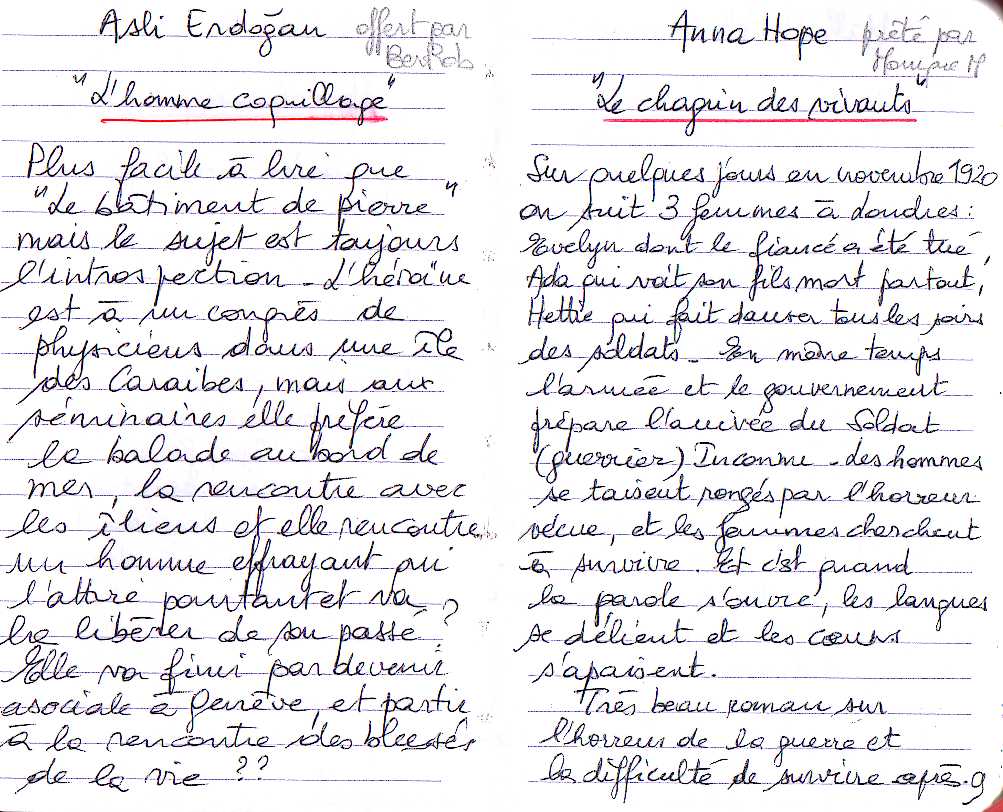 Asli Erdoğan offert par
BenRob
"L'homme coquillage"
Plus facile à lire que
"Le bâtiment de pierre"
mais le sujet est toujours
l'introspection - L'héroïne
est à un congrès de
physiciens dans une île
des Caraïbes, mais aux
séminaires elle préfère
la balade au bord de
mer, la rencontre avec
les îliens et elle rencontre
un homme effrayant qui
l'attire pourtant et va
la libérer de son passé ?
Elle va finir par devenir
asociale à Genève, et partir
à la rencontre des blessés
de la vie ??
Anna Hope prêté par
Monique M
"Le chagrin des vivants"
Sur quelques jours en novembre 1920
on suit 3 femmes à Londres :
Evelyn dont le fiancé a été tué,
Ada qui voit son fils mort partout,
Hettie qui fait danser tous les soirs
des soldats - En même temps
l'armée et le gouvernement
prépare l'arrivée du Soldat
(guerrier) Inconnu - des hommes
se taisent rongés par l'horreur
vécue, et les femmes cherchent
à survivre. Et c'est quand
la parole s'ouvre, les langues
se délient et les cœurs
s'apaisent.
Très beau roman sur
l'horreur de la guerre et
la difficulté de survivre après. 9